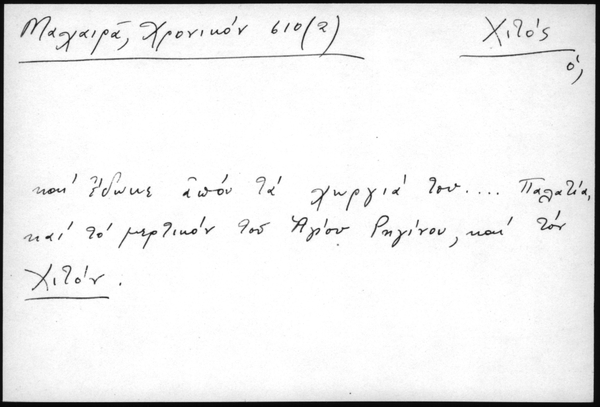 Μαχαιρᾶ, Χρονικόν 610(2)
Χιτός
ὁ,
καί ἔδωκε ἀπόν τά χωργιά του.... Παλατία,
καί τό μερτικόν τοῦ Ἁγίου Ρηγίνου, καί τόν
Χιτόν.